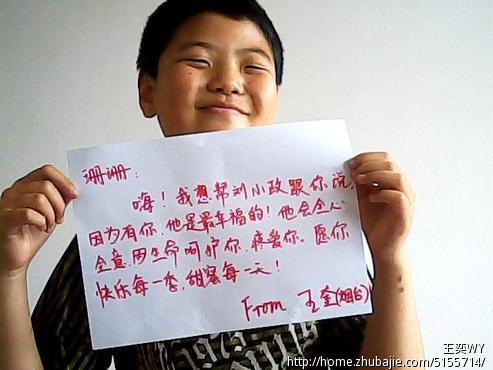 珊珊:
嗨！我想帮刘小政跟你说,
因为有你,他是最幸福的！他会全心
全意,用生命呵护你,疼爱你。愿你
快乐每一季,甜蜜每一天！
From 王奎(烟台)
王奕WY
http://home.zhubajie.com/5155714/